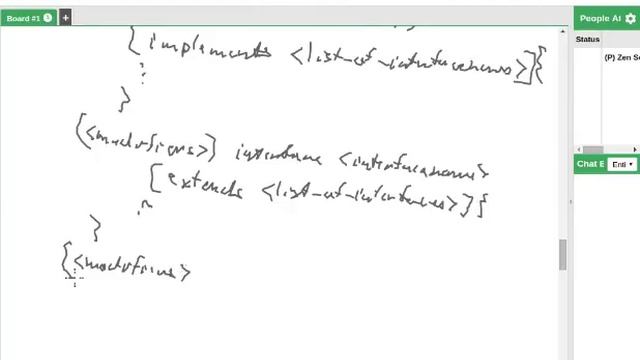 Board #1
People
Status
(P) Zen Se
Chat E
[implements <list-of-interfacenames>]{
}
[<modifiers>] interface <interfacename>
[extends <list-of-interfaces>]{
}
[<modifiers>